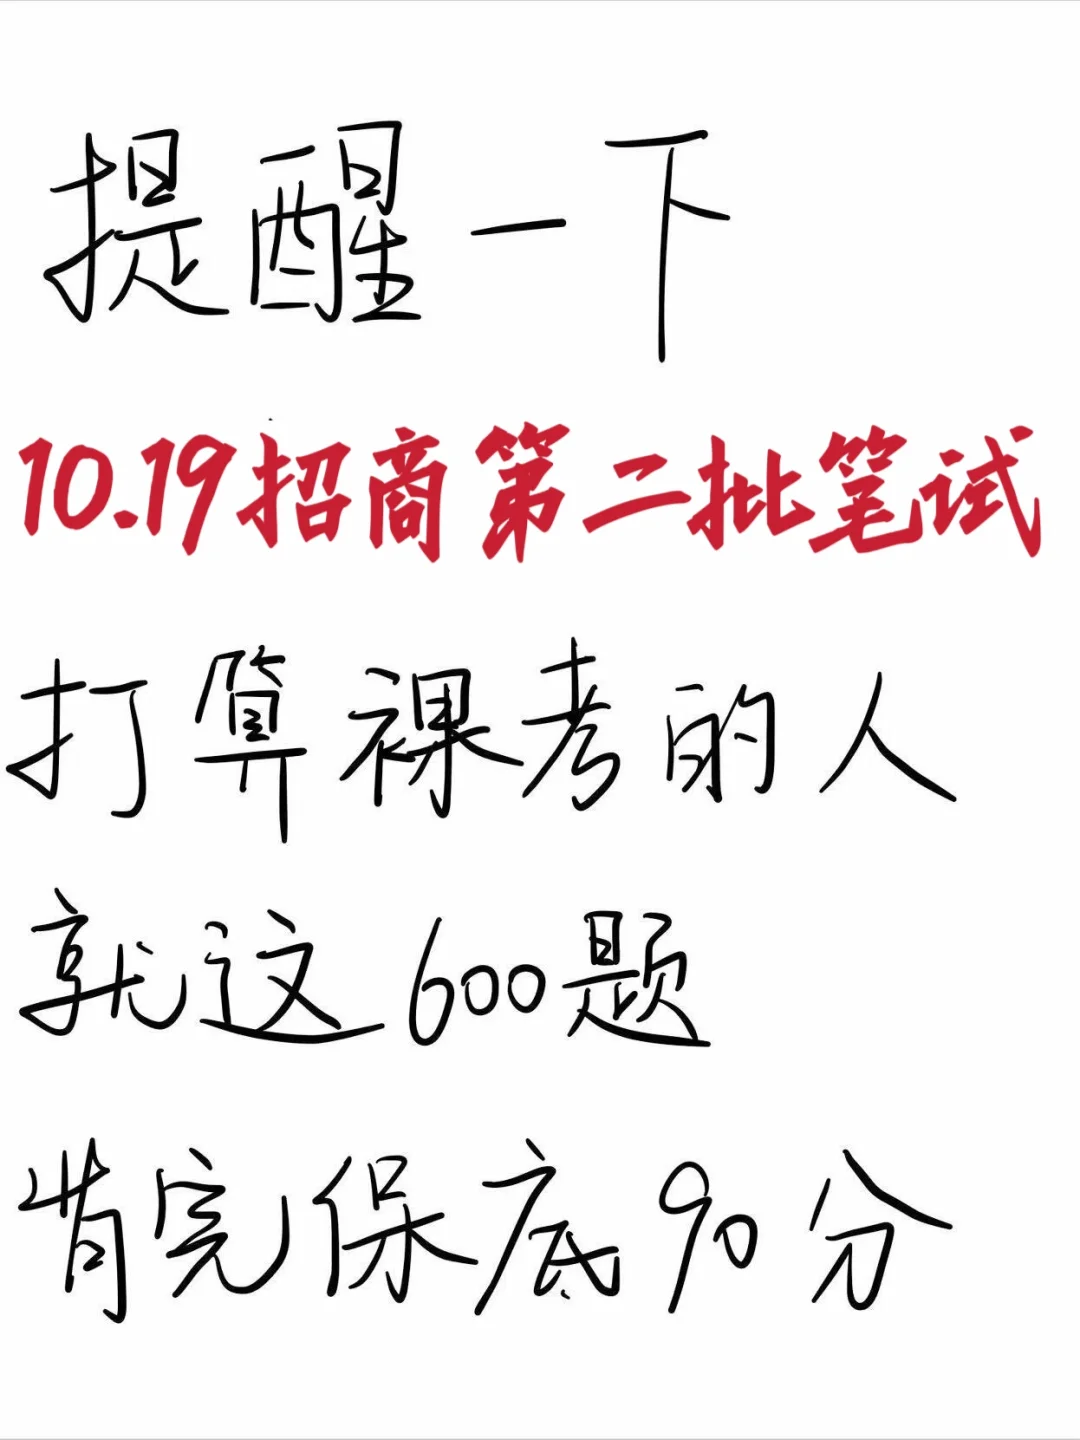 提醒一下
10.19招商第二批笔试
打算裸考的人
就这600题
背完保底90分